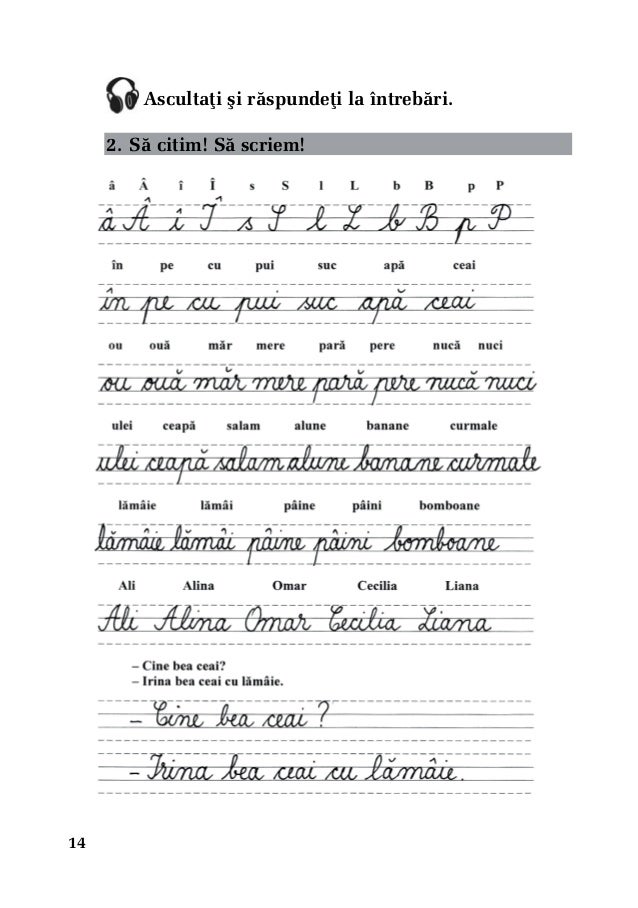 Ascultaţi şi răspundeţi la întrebări.
2. Să citim! Să scriem!
â Â î Î s S l L b B p P
â Â î Î s S l L b B p P
în pe cu pui suc apă ceai
în pe cu pui suc apă ceai
ou ouă măr mere pară pere nucă nuci
ou ouă măr mere pară pere nucă nuci
ulei ceapă salam alune banane curmale
ulei ceapă salam alune banane curmale
lămâie lămâi pâine pâini bomboane
lămâie lămâi pâine pâini bomboane
Ali Alina Omar Cecilia Liana
Ali Alina Omar Cecilia Liana
– Cine bea ceai?
– Irina bea ceai cu lămâie.
– Cine bea ceai?
– Irina bea ceai cu lămâie.
14